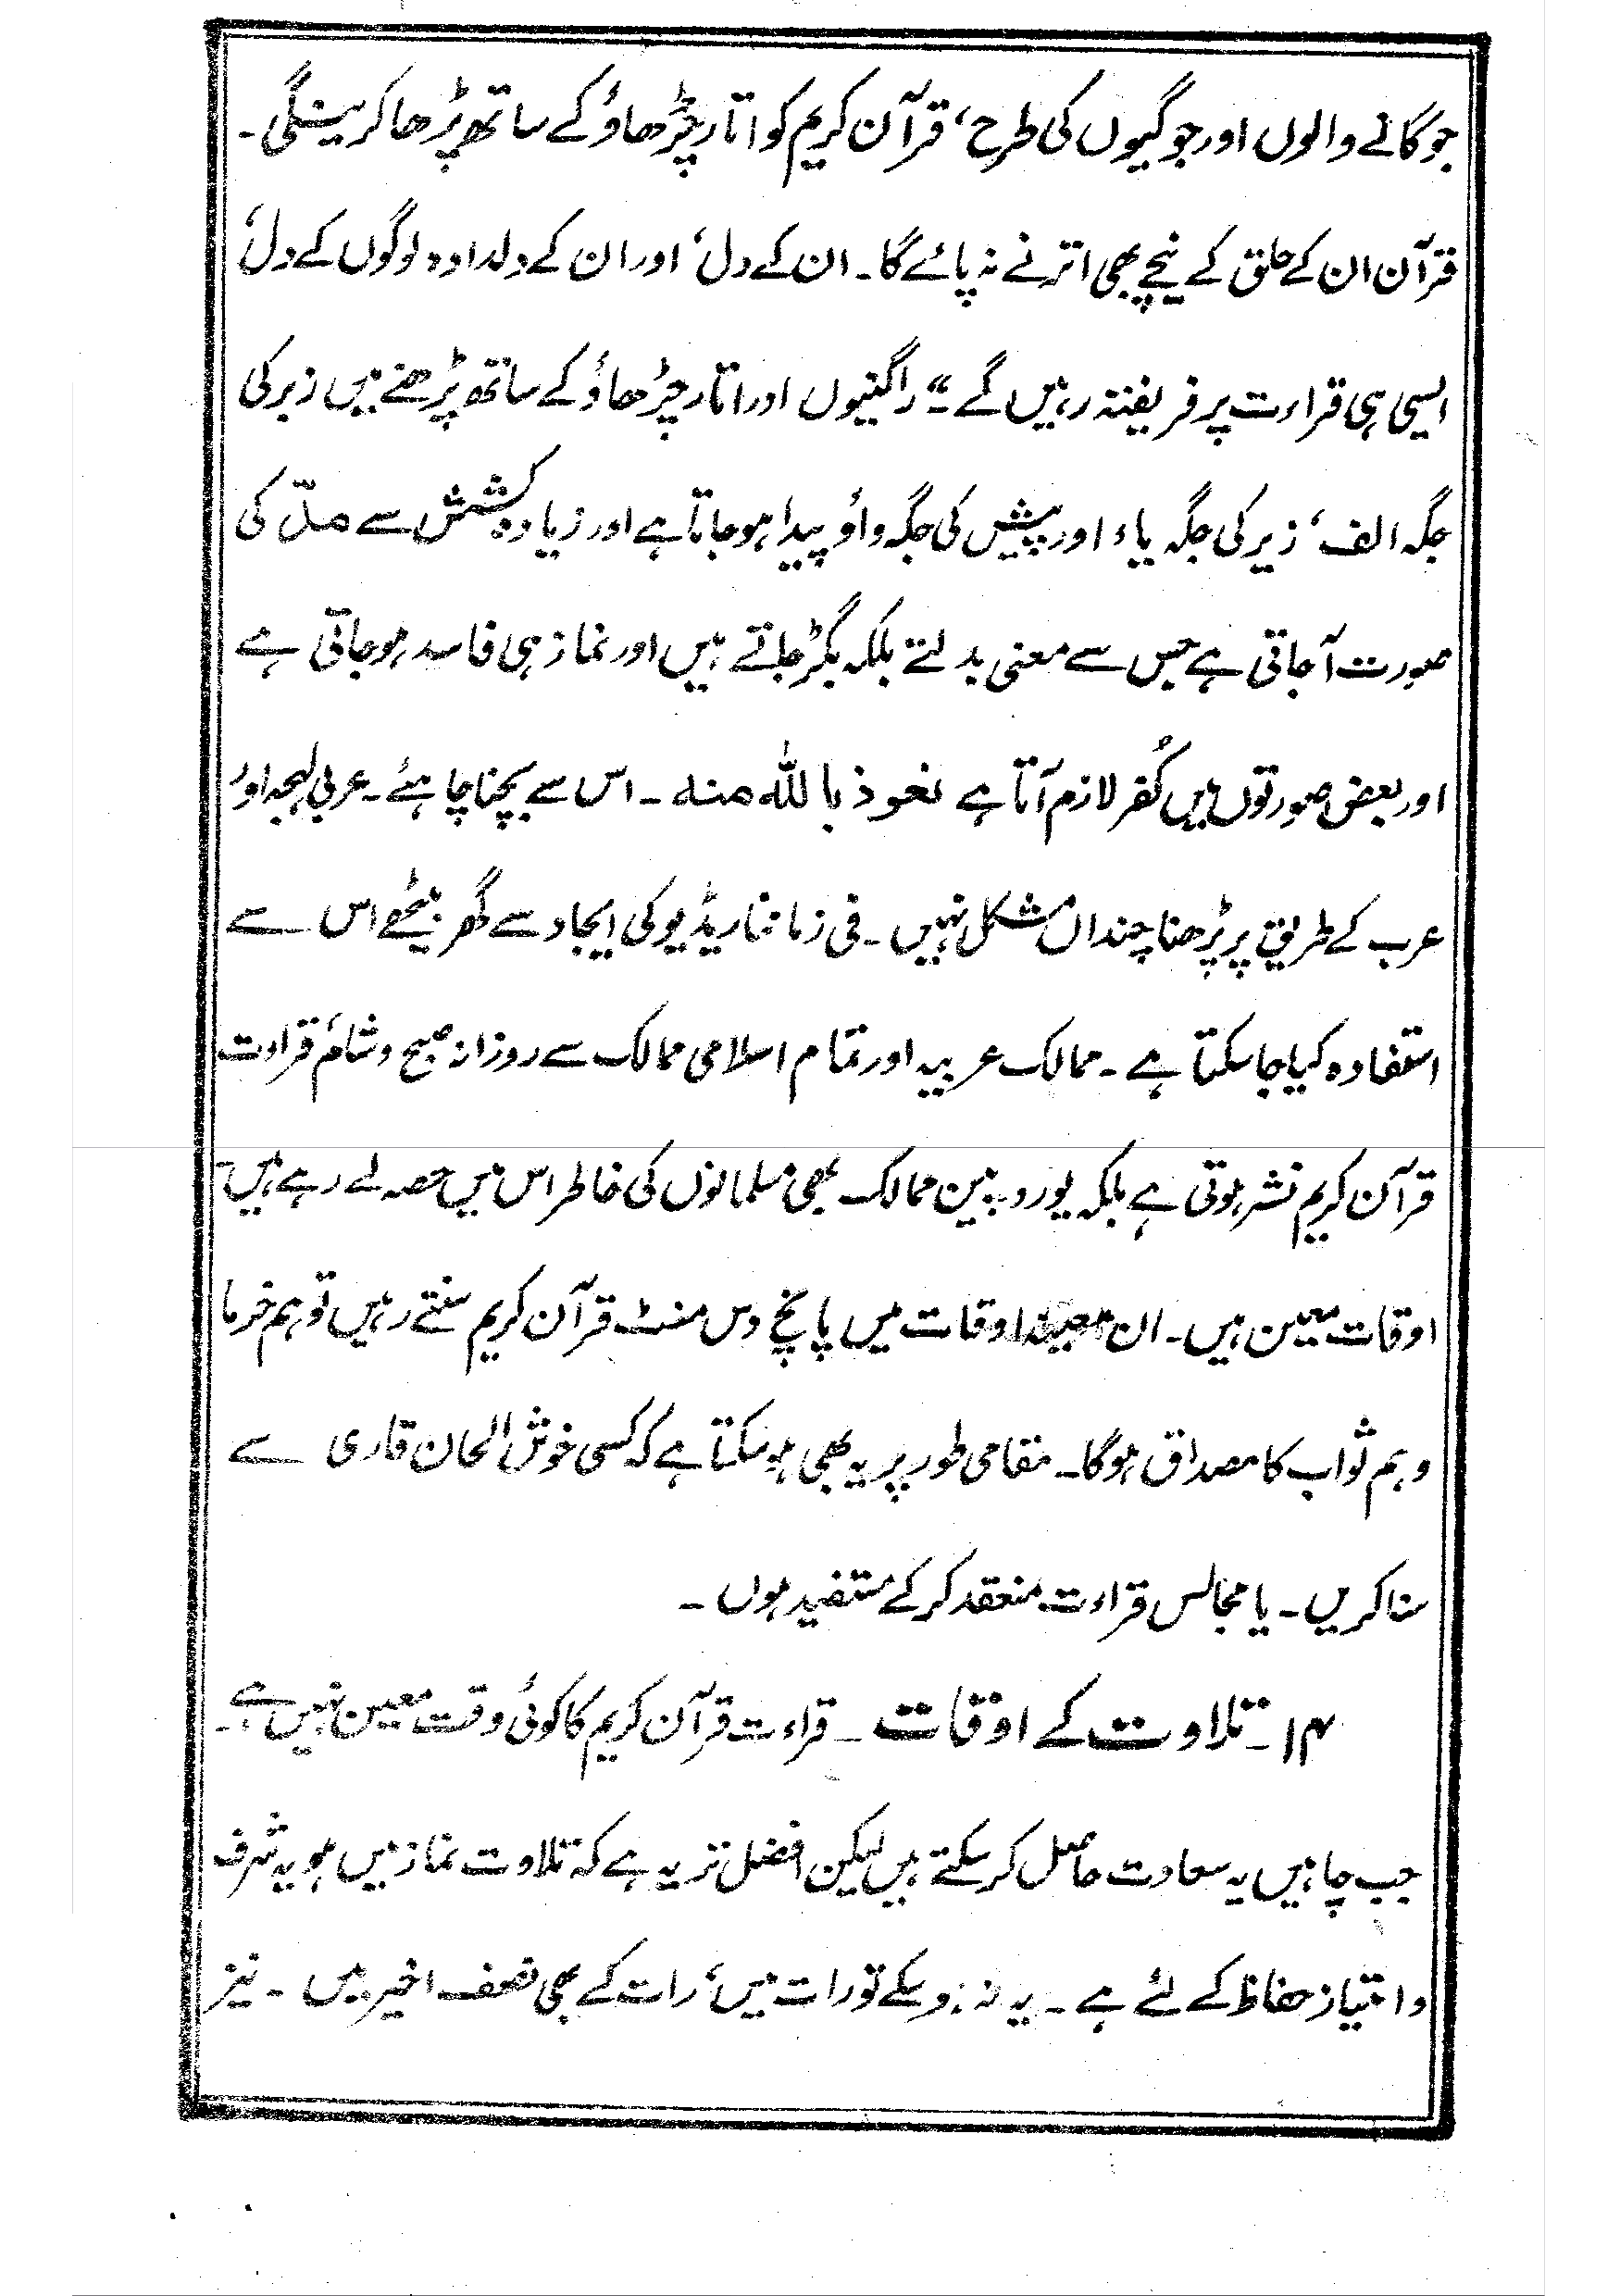 جو گانے والوں اور جوگیوں کی طرح، قرآن کریم کو اتار چڑھاؤ کے ساتھ پڑھا کرینگی۔
قرآن ان کے حلق کے نیچے بھی اترنے نہ پائے گا۔ ان کے دل، اور ان کے دلدادہ لوگوں کے دل،
ایسی ہی قراءت پر فریفتہ رہیں گے۔" راگنیوں اور اتار چڑھاؤ کے ساتھ پڑھنے میں زبر کی
جگہ الف، زیر کی جگہ یاء اور پیش کی جگہ واؤ پیدا ہوجاتا ہے اور زیادہ کشش سے مدّ کی
صورت آجاتی ہے جس سے معنی بدلتے بلکہ بگڑ جاتے ہیں اور نماز ہی فاسد ہوجاتی ہے
اور بعض صورتوں میں کُفر لازم آتا ہے نعوذ باللّٰہ منہ۔ اس سے بچنا چاہئے۔ عربی لہجہ اور
عرب کے طریق پر پڑھنا چنداں مشکل نہیں۔ فی زماننا ریڈیو کی ایجاد سے گھر بیٹھے اس سے
استفادہ کیا جاسکتا ہے۔ ممالک عربیہ اور تمام اسلامی ممالک سے روزانہ صبح و شام، قراءت
قرآن کریم نشر ہوتی ہے بلکہ یوروپین ممالک بھی مسلمانوں کی خاطر اس میں حصہ لے رہے ہیں۔
اوقات معین ہیں۔ ان معینہ اوقات میں پانچ دس منٹ قرآن کریم سنتے رہیں تو ہم خرما
وہم ثواب کا مصداق ہوگا۔ مقامی طور پر یہ بھی ہوسکتا ہے کہ کسی خوش الحان قاری سے
سنا کریں۔ یا مجالس قراءت منعقد کرکے مستفید ہوں۔
۱۴۔ تلاوت کے اوقات۔ قراءت قرآن کریم کا کوئی وقت معین نہیں ہے۔
جب چاہیں یہ سعادت حاصل کرسکتے ہیں لیکن افضل تر یہ ہے کہ تلاوت نماز میں ہو یہ شرف
و امتیاز حفاظ کے لئے ہے۔ یہ نہ ہوسکے تو رات میں، رات کے بھی نصف اخیر میں۔ نیز